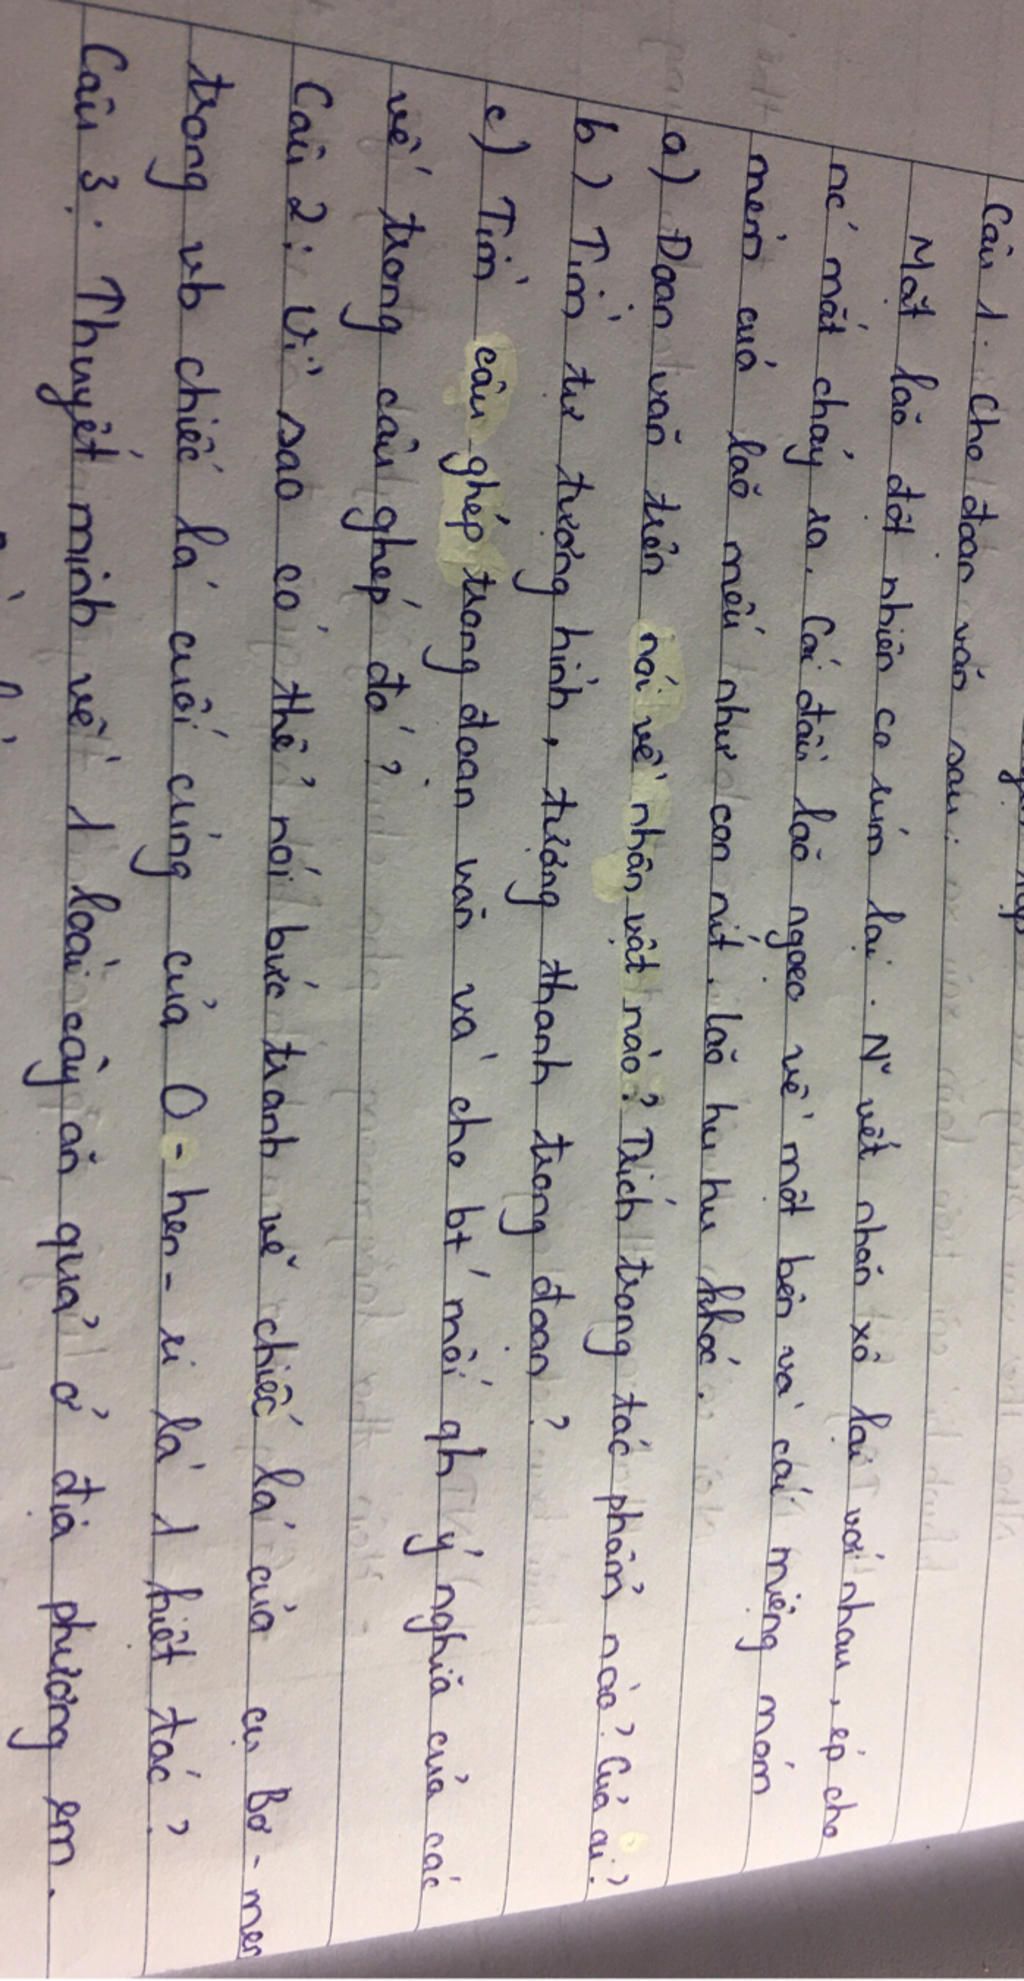 Câu 1: Cho đoạn văn sau:
Mặt lão đột nhiên co rúm lại. N~ vết nhăn xô lại với nhau, ép cho
nc' mắt chảy ra. Cái đầu lão ngoẹo về một bên và cái miệng móm
mém của lão mếu như con nít. lão hu hu khóc.
a) Đoạn văn trên nói về nhân vật nào? Trích trong tác phẩm nào? Của ai?
b) Tìm từ tượng hình, tượng thanh trong đoạn?
c) Tìm câu ghép trong đoạn văn và cho bt' mối qh ý nghĩa của các
vế trong câu ghép đó?
Câu 2: Vì sao có thể nói bức tranh vẽ chiếc lá của cụ Bơ-men
trong vb chiếc lá cuối cùng của O-hen-ri là 1 kiệt tác?
Câu 3: Thuyết minh về 1 loài cây ăn quả ở địa phương em.